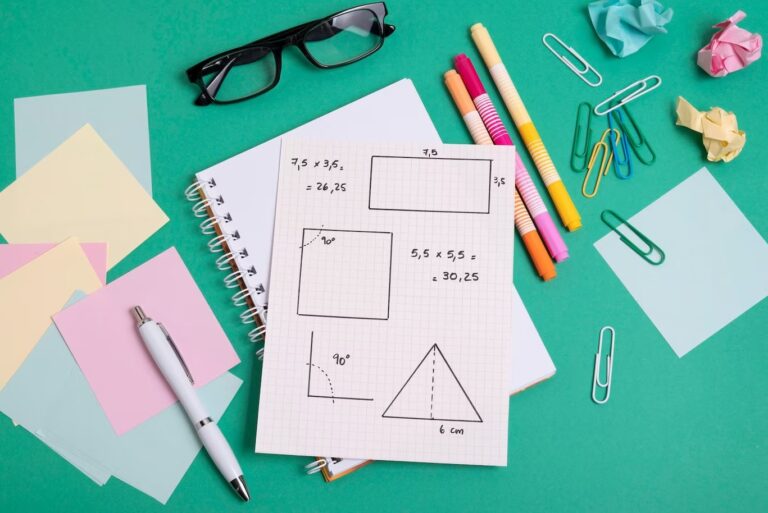 7,5
7,5 × 3,5=
= 26,25
3,5
90°
5,5 × 5,5 =
= 30,25
90°
6 cm